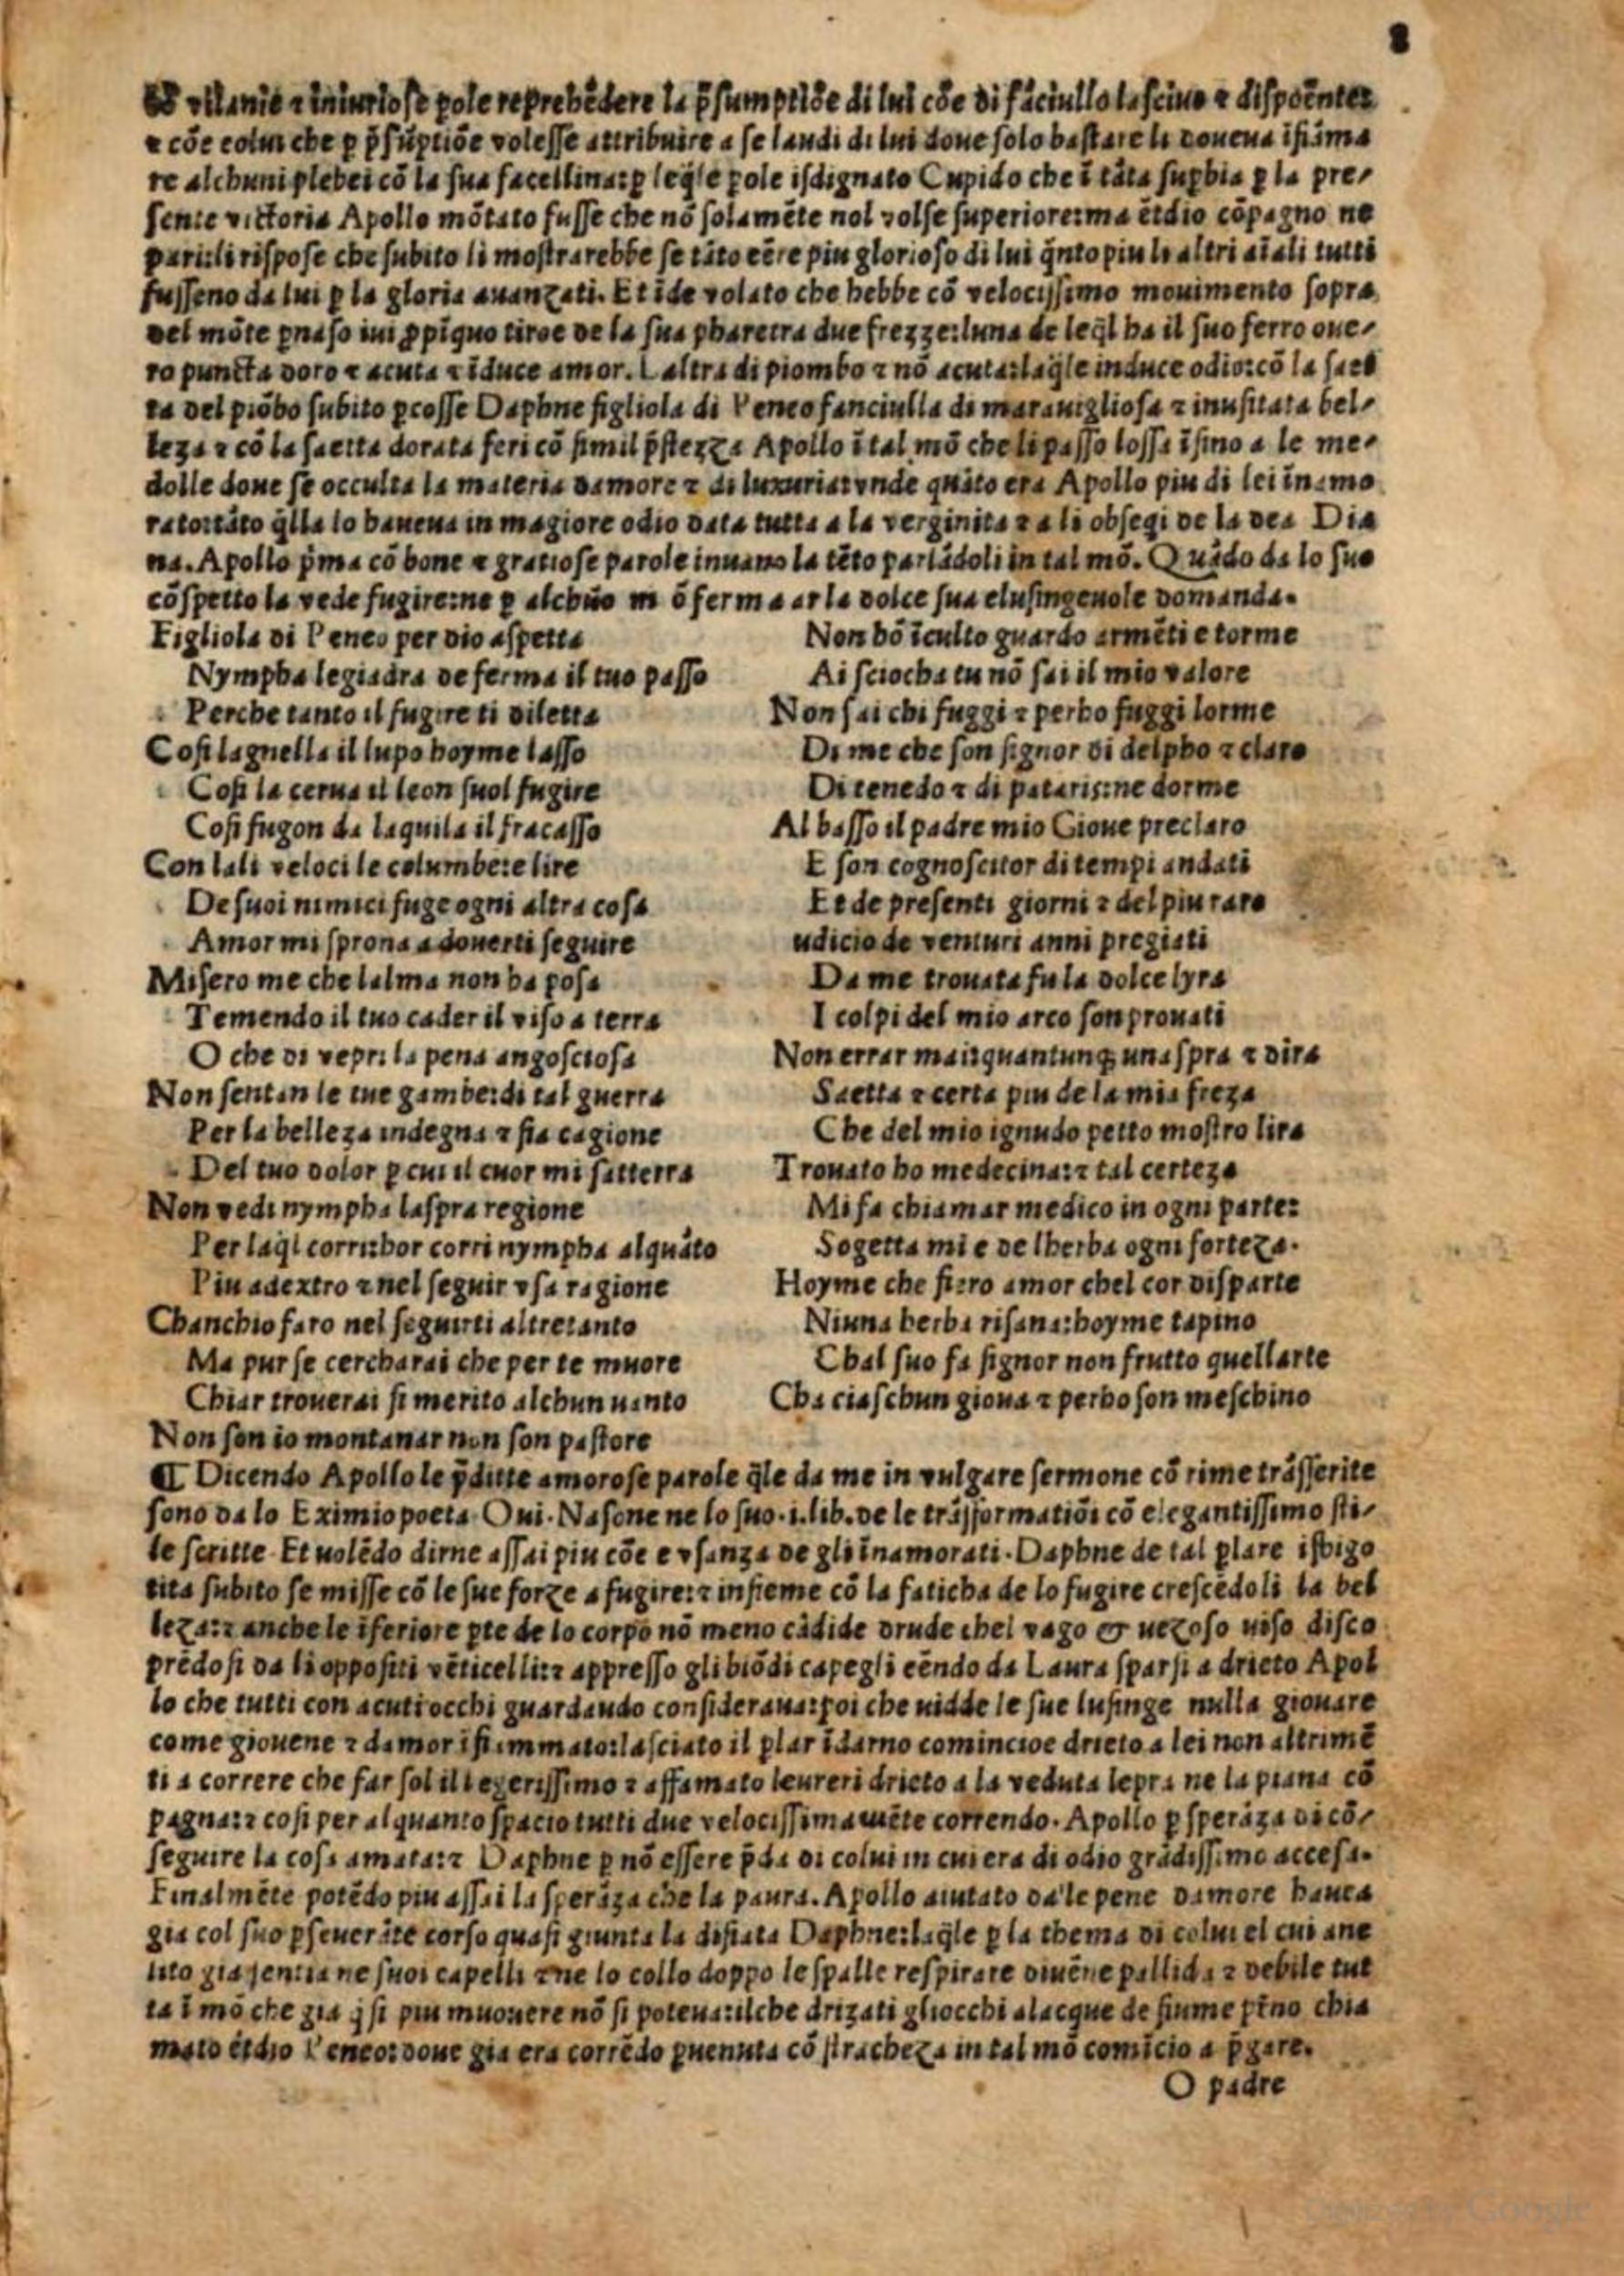 8
villanie ⁊ iniuriose ꝑole reprehēdere la p̄sumptiōe di lui cōe di fāciullo lasciuo ⁊ dispoēnte:
⁊ cōe colui che ꝑ p̄sūptiōe volesse attribuire a se laudi di lui doue solo bastare li doueua ifiāma
re alchuni plebei cō la sua facellina:ꝑ leq̄le ꝑole isdignato Cupido che ī tāta suꝑbia ꝑ la pre-
sente victoria Apollo mōtato fusse che nō solamēte nol volse superiore:ma ētdio cōpagno ne
pari:li rispose che subito li mostrarebbe se tāto eēre piu glorioso di lui q̄nto piu li altri aīali tutti
fusseno da lui ꝑ la gloria auanzati. Et īde volato che hebbe cō velocissimo mouimento sopra
del mōte ꝑnaso iui ꝓpīquo tiroe de la sua pharetra due frezze:luna de leq̄l ha il suo ferro oue-
ro puncta doro ⁊ acuta ⁊ īduce amor. Laltra di piombo ⁊ nō acuta:laq̄le induce odio:cō la saet
ta del piōbo subito ꝑcosse Daphne figliola di Peneo fanciulla di marauigliosa ⁊ inusitata bel-
leza ⁊ cō la saetta dorata feri cō simil p̄stezza Apollo ī tal mō che li passo lossa īsino a le me-
dolle doue se occulta la materia damore ⁊ di luxuria:vnde quāto era Apollo piu di lei inamo
rato:tāto q̄lla lo haueua in magiore odio data tutta a la verginita ⁊ a li obseqi de la dea Dia
na. Apollo p̄ma cō bone ⁊ gratiose parole inuano la tēto parlādoli in tal mō. Quādo da lo suo
cōspetto la vede fugire:ne ꝑ alchūo m ō ferma ar la dolce sua elusingeuole domanda.
Figliola di Peneo per dio aspetta
Nympha legiadra de ferma il tuo passo
Perche tanto il fugire ti diletta
Cosi lagnella il lupo hoyme lasso
Cosi la cerua il leon suol fugire
Cosi fugon da laquila il fracasso
Con lali veloci le columbe:e lire
De suoi nimici fuge ogni altra cosa
Amor mi sprona a douerti seguire
Misero me che lalma non ha posa
Temendo il tuo cader il viso a terra
O che di vepri la pena angosciosa
Non sentan le tue gambe:di tal guerra
Per la belleza indegna ⁊ sia cagione
Del tuo dolor ꝑ cui il cuor mi satterra
Non vedi nympha laspra regione
Per laq̄l corri:hor corri nympha alquāto
Piu adextro ⁊ nel seguir vsa ragione
Chanchio faro nel seguirti altretanto
Ma pur se cercharai che per te muore
Chiar trouerai si merito alchun uanto
Non son io montanar non son pastore
Non hō īculto guardo armēti e torme
Ai sciocha tu nō sai il mio valore
Non sai chi fuggi ⁊ perho fuggi lorme
Di me che son signor di delpho ⁊ claro
Di tenedo ⁊ di pataris:ne dorme
Al basso il padre mio Gioue preclaro
E son cognoscitor di tempi andati
Et de presenti giorni ⁊ del piu raro
udicio de venturi anni pregiati
Da me trouata fu la dolce lyra
I colpi del mio arco son prouati
Non errar mai:quantunqꝫ una spra ⁊ dira
Saetta ⁊ certa piu de la mia freza
Che del mio ignudo petto mostro lira
Trouato ho medecina:⁊ tal certeza
Mi fa chiamar medico in ogni parte:
Sogetta mi e de lherba ogni forteza.
Hoyme che fiero amor chel cor disparte
Niuna herba risana:hoyme tapino
Chal suo fa signor non frutto quellarte
Cha ciaschun gioua ⁊ perho son meschino
¶ Dicendo Apollo le p̄ditte amorose parole q̄le da me in vulgare sermone cō rime trāsferite
sono da lo Eximio poeta Oui. Nasone ne lo suo .i.lib. de le trāsformatiōi cō elegantissimo sti-
le scritte Et uolēdo dirne assai piu cōe e vsanza de gli īnamorati. Daphne de tal ꝑlare isbigo
tita subito se misse cō le sue forze a fugire:⁊ insieme cō la faticha de lo fugire crescēdoli la bel
leza:⁊ anche le īferiore ꝑte de lo corpo nō meno cādide drude chel vago & uezoso uiso disco
prēdosi da li oppositi vēticelli:⁊ appresso gli biōdi capegli eēndo da Laura sparsi a drieto Apol
lo che tutti con acuti occhi guardando consideraua:poi che uidde le sue lusinge nulla giouare
come giouene ⁊ damor ifiammato:lasciato il ꝑlar īdarno comincioe drieto a lei non altrimē
ti a correre che far sol il legerissimo ⁊ affamato leureri drieto a la veduta lepra ne la piana cō
pagna:⁊ cosi per alquanto spacio tutti due velocissimamēte correndo. Apollo ꝑ sperāza di cō-
seguire la cosa amata:⁊ Daphne ꝑ nō essere p̄da di colui in cui era di odio grādissimo accesa.
Finalmēte potēdo piu assai la sperāza che la paura. Apollo aiutato da le pene damore hauea
gia col suo ꝑseuerāte corso quasi giunta la disiata Daphne:laq̄le ꝑ la thema di colui el cui ane
lito gia sentia ne suoi capelli ⁊ ne lo collo doppo le spalle respirare diuēne pallida ⁊ debile tut
ta ī mō che gia q̄si piu muouere nō si poteua:ilche drizati gliocchi alacque de fiume ꝑino chia
mato ētdio Peneo:doue gia era corrēdo ꝑuenuta cō stracheza in tal mō comīcio a p̄gare.
O padre